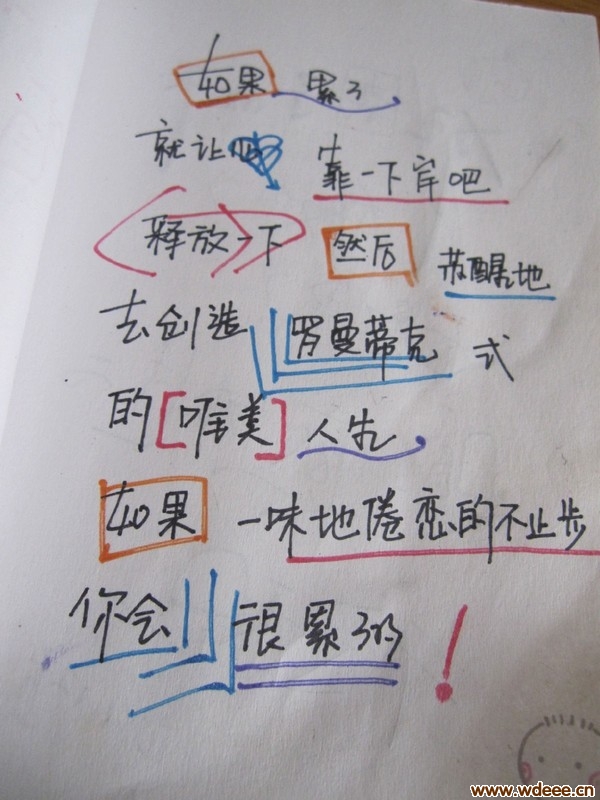 如果 累了
就让心 靠一下岸吧
释放一下 然后 苏醒地
去创造 罗曼蒂克 式
的[唯美]人生
如果 一味地倦恋的不止步
你会 很累 !
www.wdeee.cn